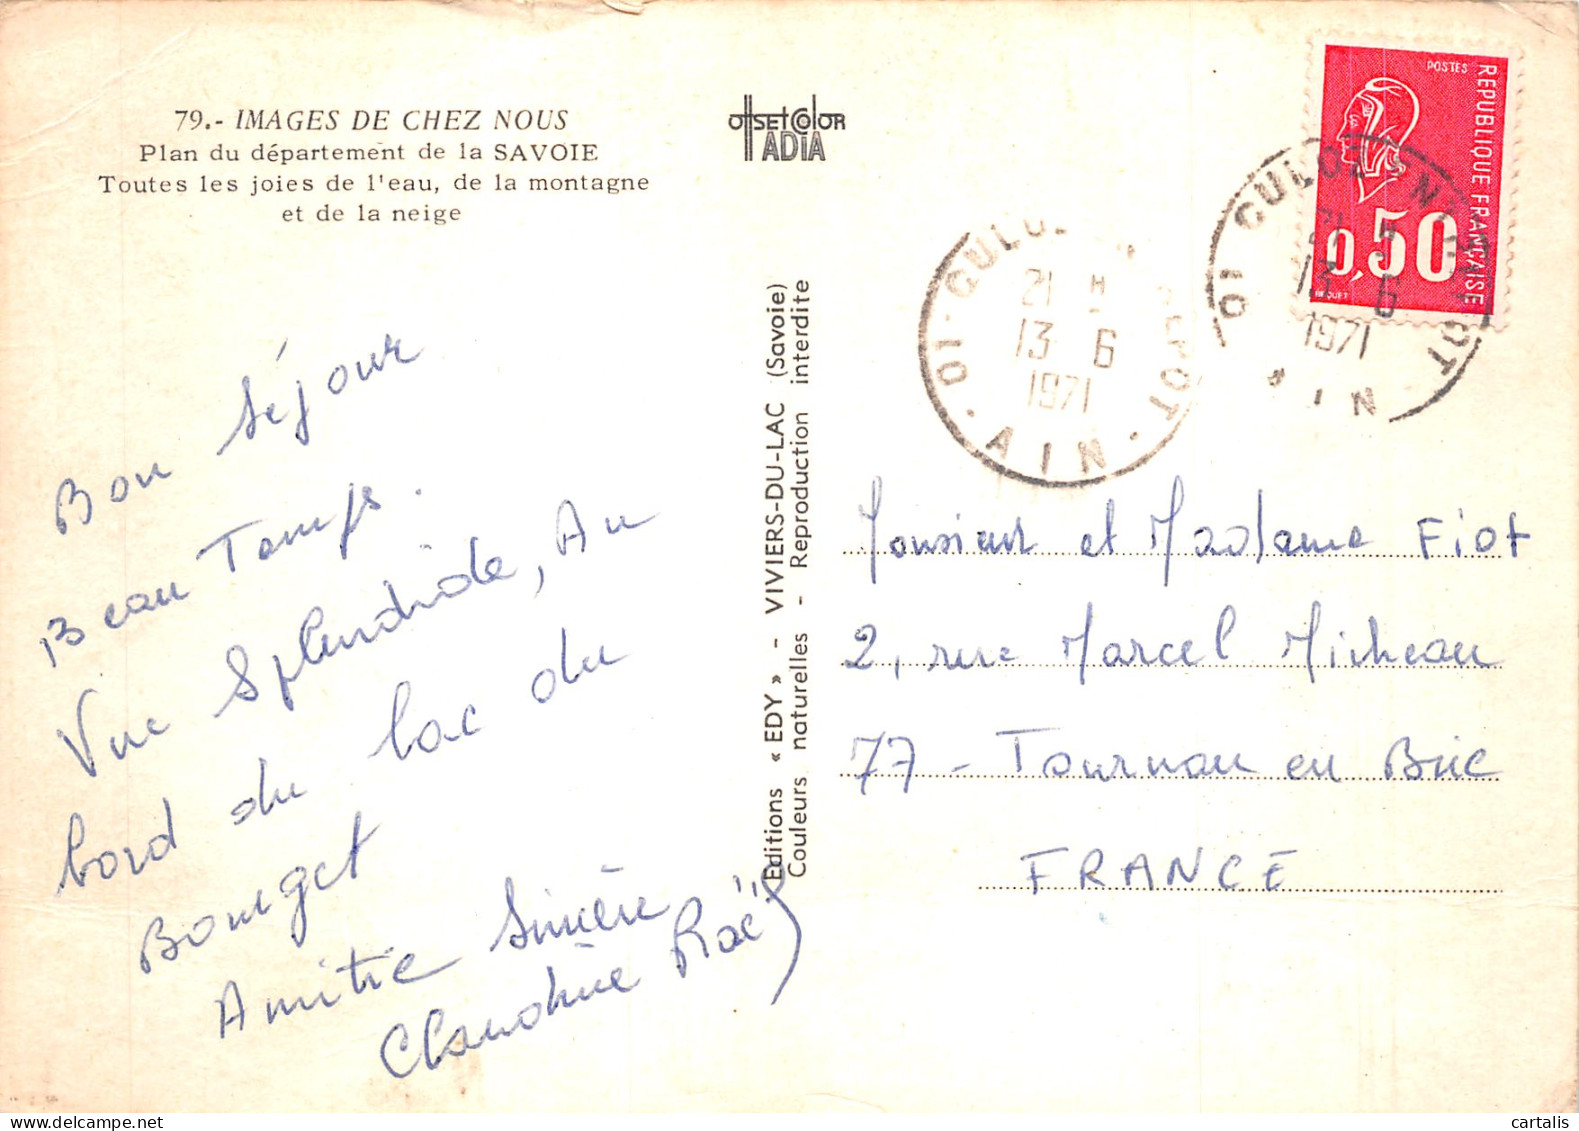 79.- IMAGES DE CHEZ NOUS
Plan du département de la SAVOIE
Toutes les joies de l'eau, de la montagne
et de la neige
offsetcolor
ADIA
Bon séjour
Beau Temps.
Vue Splendide, Au
bord du lac du
Bourget
Amitié Sincère
Claudine
Editions « EDY » - VIVIERS-DU-LAC (Savoie)
Couleurs naturelles - Reproduction interdite
POSTES
REPUBLIQUE FRANÇAISE
0,50
BEQUET
01 CULOZ
21 H
13 6
1971
AIN
01 CULOZ
21 H
13 6
1971
AIN
Monsieur et Madame Fiot
2, rue Marcel Micheau
77 - Tournan en Brie
FRANCE
cartalis.com